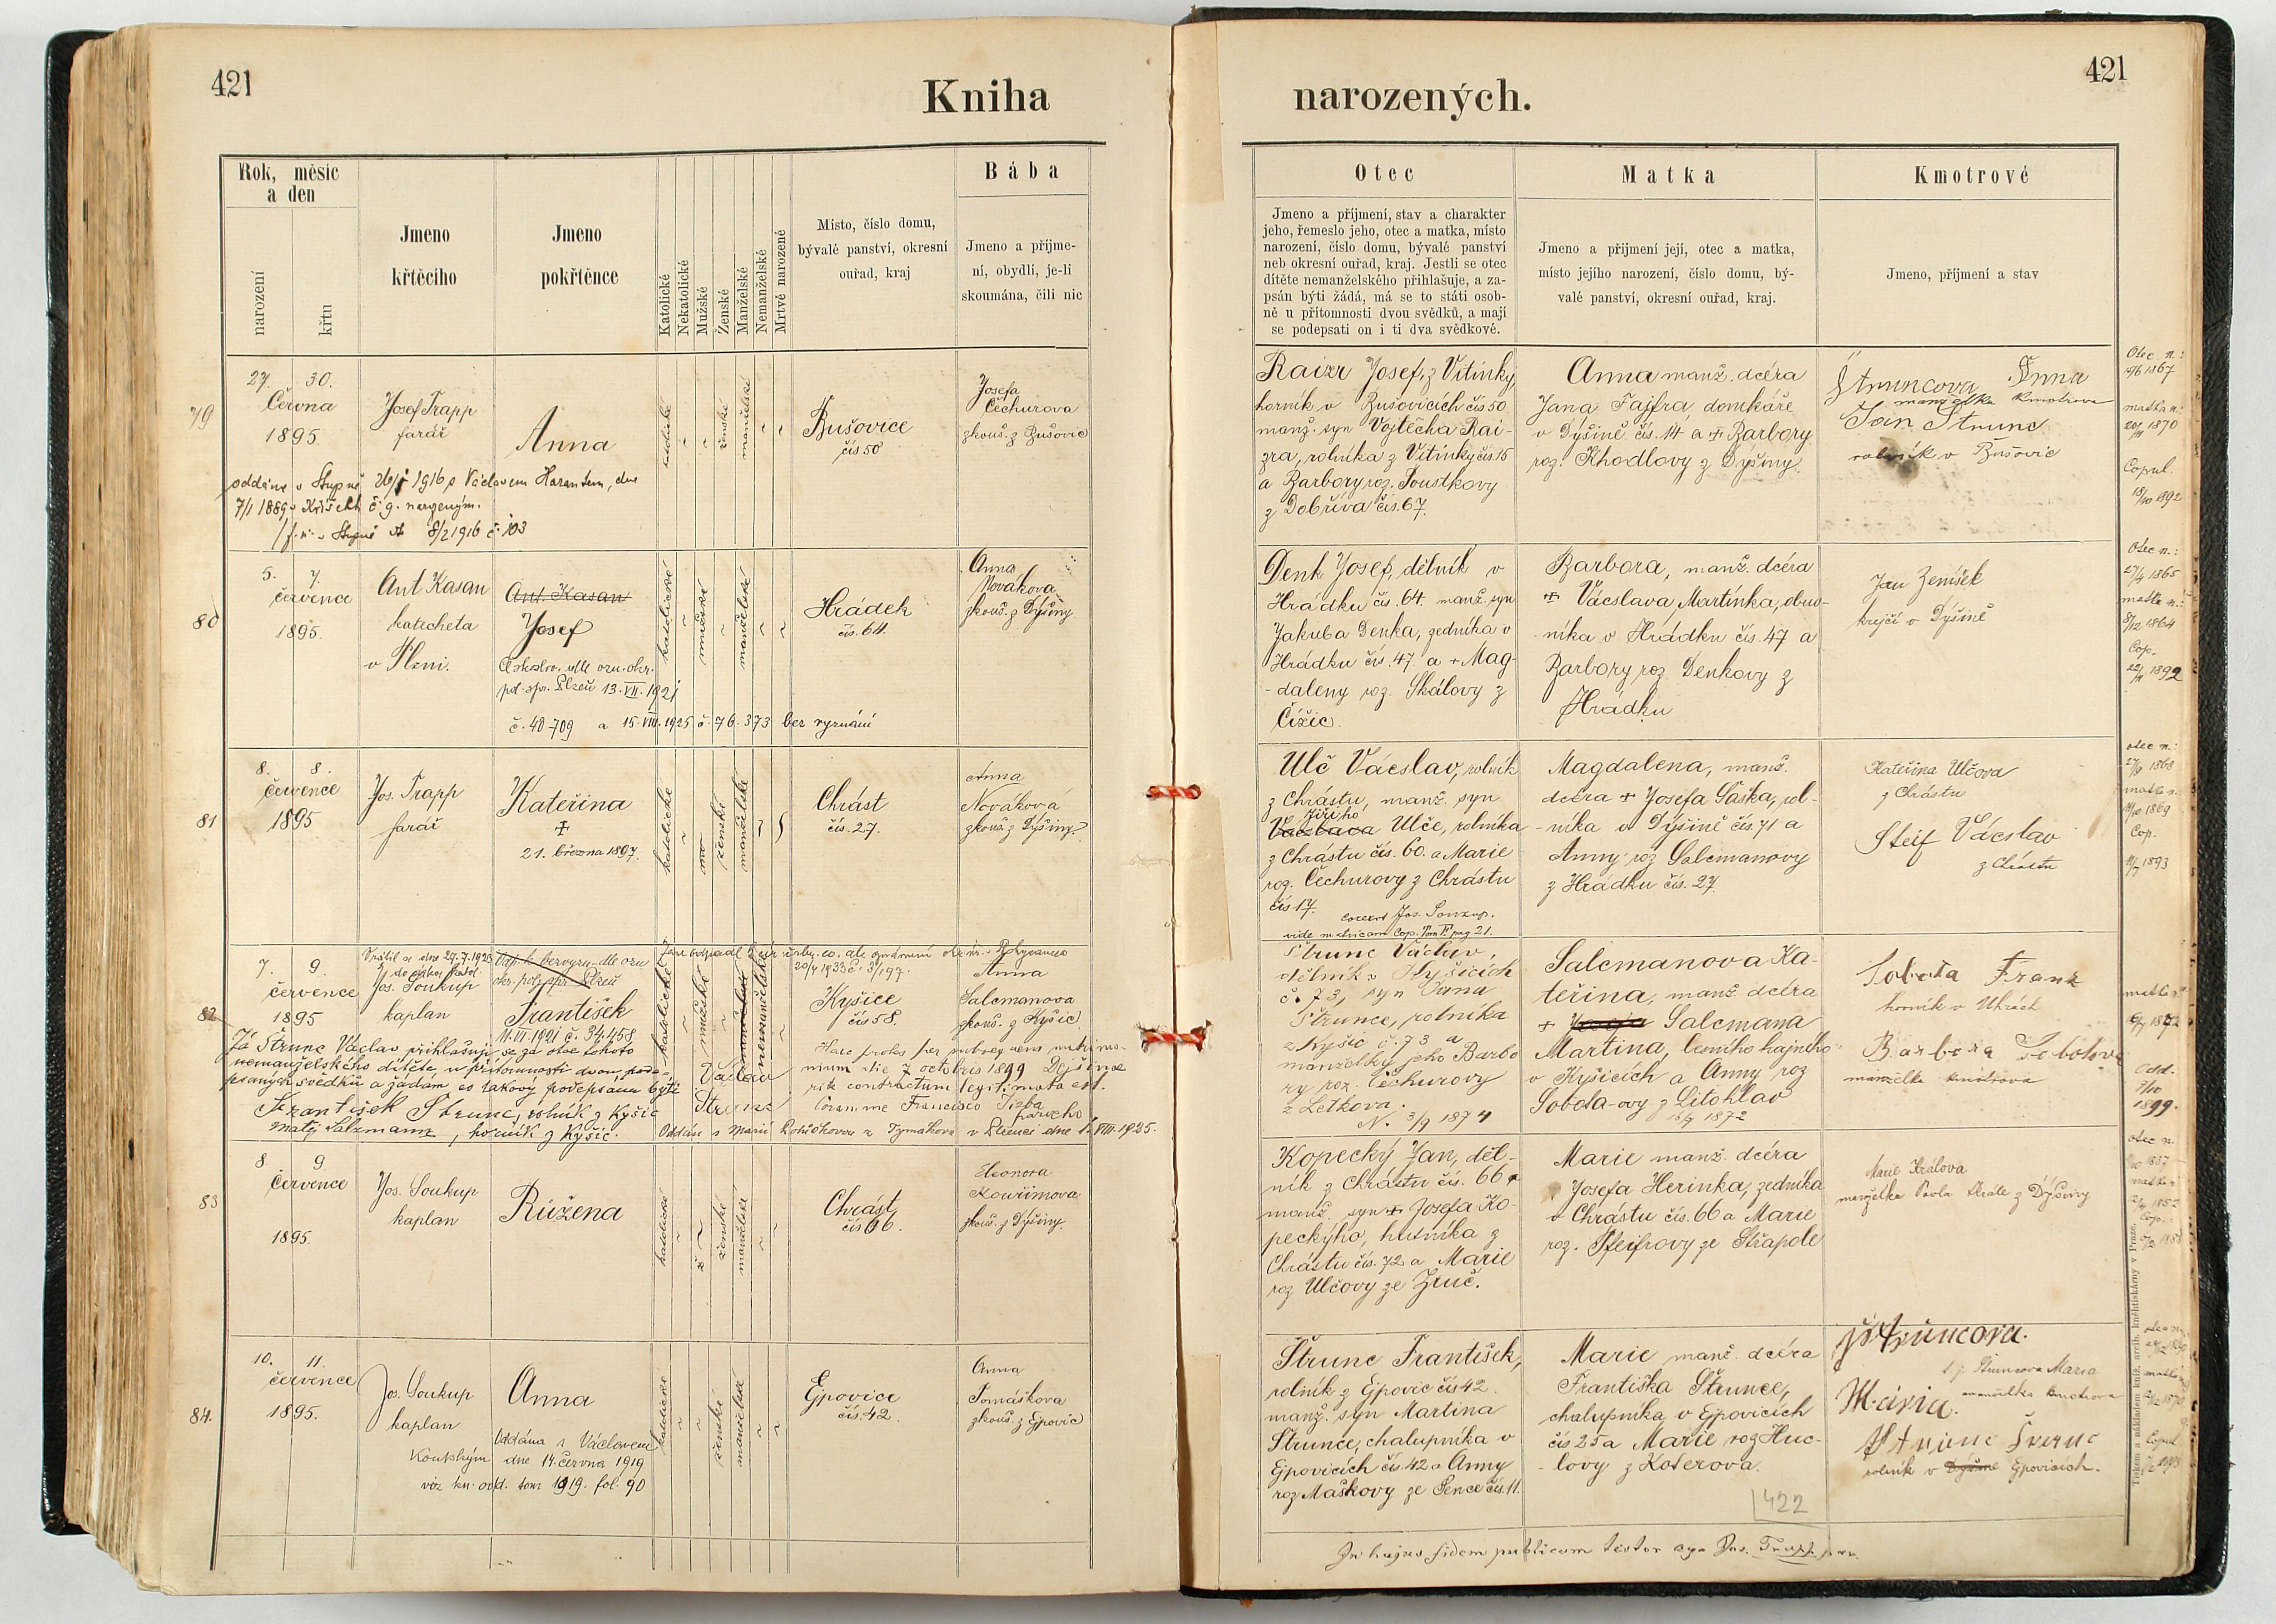 421
Kniha
narozených.
421
Rok, měsíc
a den
narození
křtu
Jmeno
křtěcího
Jmeno
pokřtěnce
Katolické
Nekatolické
Mužské
Ženské
Manželské
Nemanželské
Mrtvě narozené
Místo, číslo domu,
bývalé panství, okresní
ouřad, kraj
Bába
Jmeno a příjme-
ní, obydlí, je-li
skoumána, čili nic
Otec
Jmeno a příjmení, stav a charakter
jeho, řemeslo jeho, otec a matka, místo
narození, číslo domu, bývalé panství
neb okresní ouřad, kraj. Jestli se otec
dítěte nemanželského přihlašuje, a za-
psán býti žádá, má se to státi osob-
ně u přítomnosti dvou svědků, a mají
se podepsati on i ti dva svědkové.
Matka
Jmeno a příjmení její, otec a matka,
místo jejího narození, číslo domu, bý-
valé panství, okresní ouřad, kraj.
Kmotrové
Jmeno, příjmení a stav
79
27. 30.
Června
1895.
Josef Trapp
farář
Anna
katolické
ženské
manželské
Bušovice
čís 50
Josefa
Čechurova
zkouš. z Bušovic
oddána v Stupně 26/1 1916 s Václavem Harantem, dne
7/1 1889 v č. 9. narozeným.
8/2 1916 č. 103
Raizr Josef, z Vitinky,
horník v Bušovicích čís 50
manž. syn Vojtěcha Rai-
zra, rolníka z Vitinky čís. 15
a Barbory roz. Poustkovy
z Dobříva čís. 67.
Anna manž. dcéra
Jana Fajfra, domkáře
v Dýšině čís. 14 a + Barbory
roz. Khodlovy z Dýšiny.
Štruncova Anna
manželka kmotrova
Jan Štrunc
rolník v Bušovic
Otec n.:
19/6 1867
matka n.:
20/11 1870
Copul.
18/10 1892
80
5. 7.
července
1895.
Ant Kasan
katecheta
v Plzni.
Ant. Kasan
Josef
katolické
mužské
manželské
Hrádek
čís. 64.
Anna
Nováková
zkouš. z Dýšiny
pol. spr. Plzeň 13. VII. 1921
č. 40-709 a 15. VIII. 1925 č. 76.373 bez vyznání
Denk Josef, dělník v
Hrádku čís. 64. manž. syn
Jakuba Denka, zedníka v
Hrádku čís. 47. a + Mag-
-daleny roz. Skálovy z
Čížic.
Barbora, manž. dcéra
+ Vácslava Martínka, obuv-
-níka v Hrádku čís. 47 a
Barbory roz. Denkovy z
Hrádku
Jan Zeníšek
krejčí v Dýšině
Otec n.:
27/4 1865
matka n.:
8/12 1864
Cop.
22/11 1892
81
8. 8.
července
1895
Jos. Trapp
farář
Kateřina
+
21. března 1897.
katolické
ženské
manželské
Chrást
čís. 27.
Anna
Nováková
zkouš. z Dýšiny.
Ulč Vácslav, rolník
z Chrástu, manž. syn
Jiřího
Vácslava Ulče, rolníka
z Chrástu čís. 60. a Marie
roz. Čechurovy z Chrástu
čís 17. correxit Jos. Soukup.
vide matricam Cop. Tom F. pag 21.
Magdalena, manž.
dcéra + Josefa Saška, rol-
-níka v Dýšině čís. 71 a
Anny roz Salcmanovy
z Hrádku čís. 27.
Kateřina Ulčova
z Chrástu
Steif Vácslav
z Chrástu
otec n.:
27/9 1868
matka n.
1869
Cop.
1893
82
7. 9.
července
1895
Vrátil se dne 29.7.1926
do církve katol.
Jos. Soukup
kaplan
František
11. VI. 1921 č. 34.458
katolické
mužské
manželské
nemanželské
Kyšice
čís 58.
Anna
Salcmanova
zkouš. z Kyšic
Já Štrunc Václav přihlašuji se za otce tohoto
nemanželského dítěte, u přítomnosti dvou pode-
psaných svědků a žádám co takový podepsánu býti
Václav
Štrunc
František Štrunc, rolník z Kyšic
Matěj Salzmann, horník z Kyšic.
Haec proles per subsequens matrimo-
nium die 7 octobris 1899 Dejšinae
rite contractum legitimata est.
Coram me Francisco Tizba
parocho
Štrunc Václav,
dělník v Kyšicích
č. 73, syn Jana
Štrunce, rolníka
z Kyšic č. 73 a
manželky jeho Barbo
ry roz. Čechurovy
z Letkova.
N. 3/9 1874
Salcmanova Ka-
teřina, manž. dcéra
+ Josefa Salcmana
Martina, lesního hajného
v Kyšicích a Anny roz
Sobota-ovy z Litohlav
16/7 1872
Sobota Franz
horník v Uhrách
Barbora Sobotova
manželka kmotrova
matka n.
16/7 1872
Odd.
7/10
1899.
83
8. 9
Července
1895.
Jos. Soukup
kaplan
Růžena
katolické
ženské
manželské
Chrást
čís 66.
Eleonora
Kouřimova
zkouš. z Dýšiny.
Kopecký Jan, děl-
ník z Chrástu čís. 66,
manž. syn + Josefa Ko-
peckýho, hutníka z
Chrástu čís. 72 a Marie
roz Ulčovy ze Zruč.
Marie manž. dcéra
Josefa Herinka, zedníka
v Chrástu čís. 66 a Marie
roz. Pfeifrovy ze Střapole
Marie Králova
manželka Pavla Krále z Dýšiny
otec n.
1857
matka n.
1852
Cop.
84.
10. 11.
července
1895.
Jos. Soukup
kaplan
Anna
katolické
ženské
manželské
Ejpovice
čís. 42.
Anna
Tomáškova
zkouš. z Ejpovic
Oddána s Václavem
Koutským dne 14. června 1919
viz kn. odd. tom 1919. fol. 90
Štrunc František,
rolník z Ejpovic čís 42.
manž. syn Martina
Štrunce, chalupníka v
Ejpovicích čís. 42 a Anny
roz Maškovy ze Sence čís. 11.
Marie manž. dcéra
Františka Štrunce,
chalupníka v Ejpovicích
čís 25 a Marie roz Huc-
-lovy z Koterova.
Štruncova Maria
manželka kmotrova
Maria.
Štrunc
rolník v Dýšině Ejpovicích.
422
In hujus fidem publicam testor ego Jos. Trapp
Tiskem a nákladem kníž. arcib. knihtiskárny v Praze.